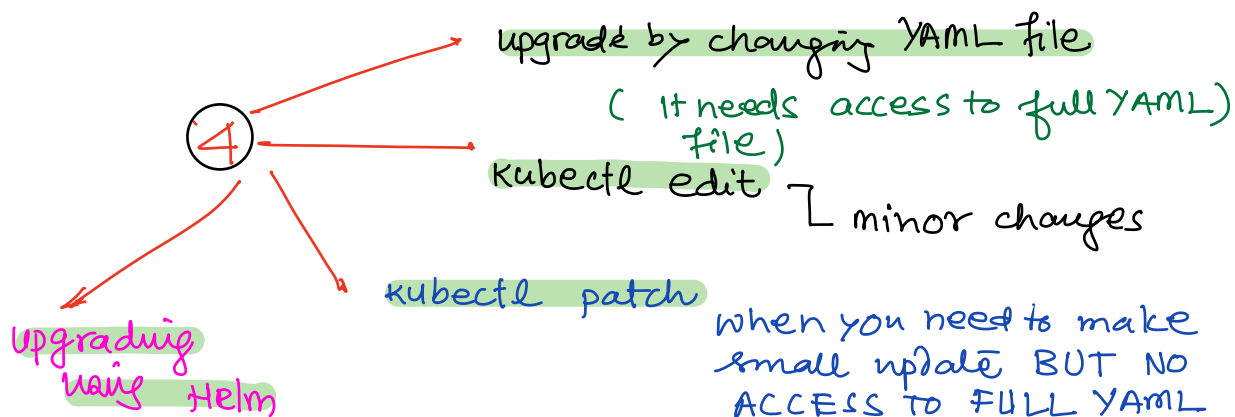 upgrade by changing YAML file
( It needs access to full YAML)
file)
4
kubectl edit
minor changes
kubectl patch
when you need to make
small update BUT NO
ACCESS TO FULL YAML
upgrading
using Helm